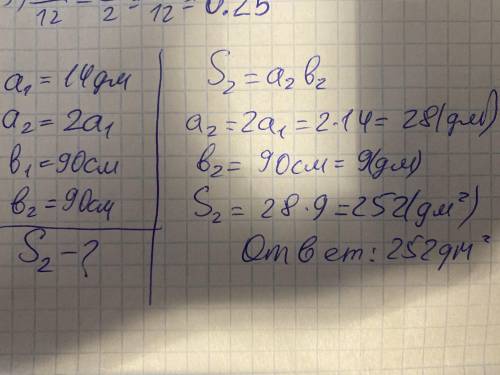 12 = 2 = 12 = 0.25
a₁ = 14дм
a₂ = 2a₁
в₁ = 90см
в₂ = 90см
S₂ - ?
S₂ = a₂ в₂
a₂ = 2a₁ = 2·14 = 28(дм)
в₂ = 90см = 9(дм)
S₂ = 28·9 = 252(дм²)
Ответ: 252дм²